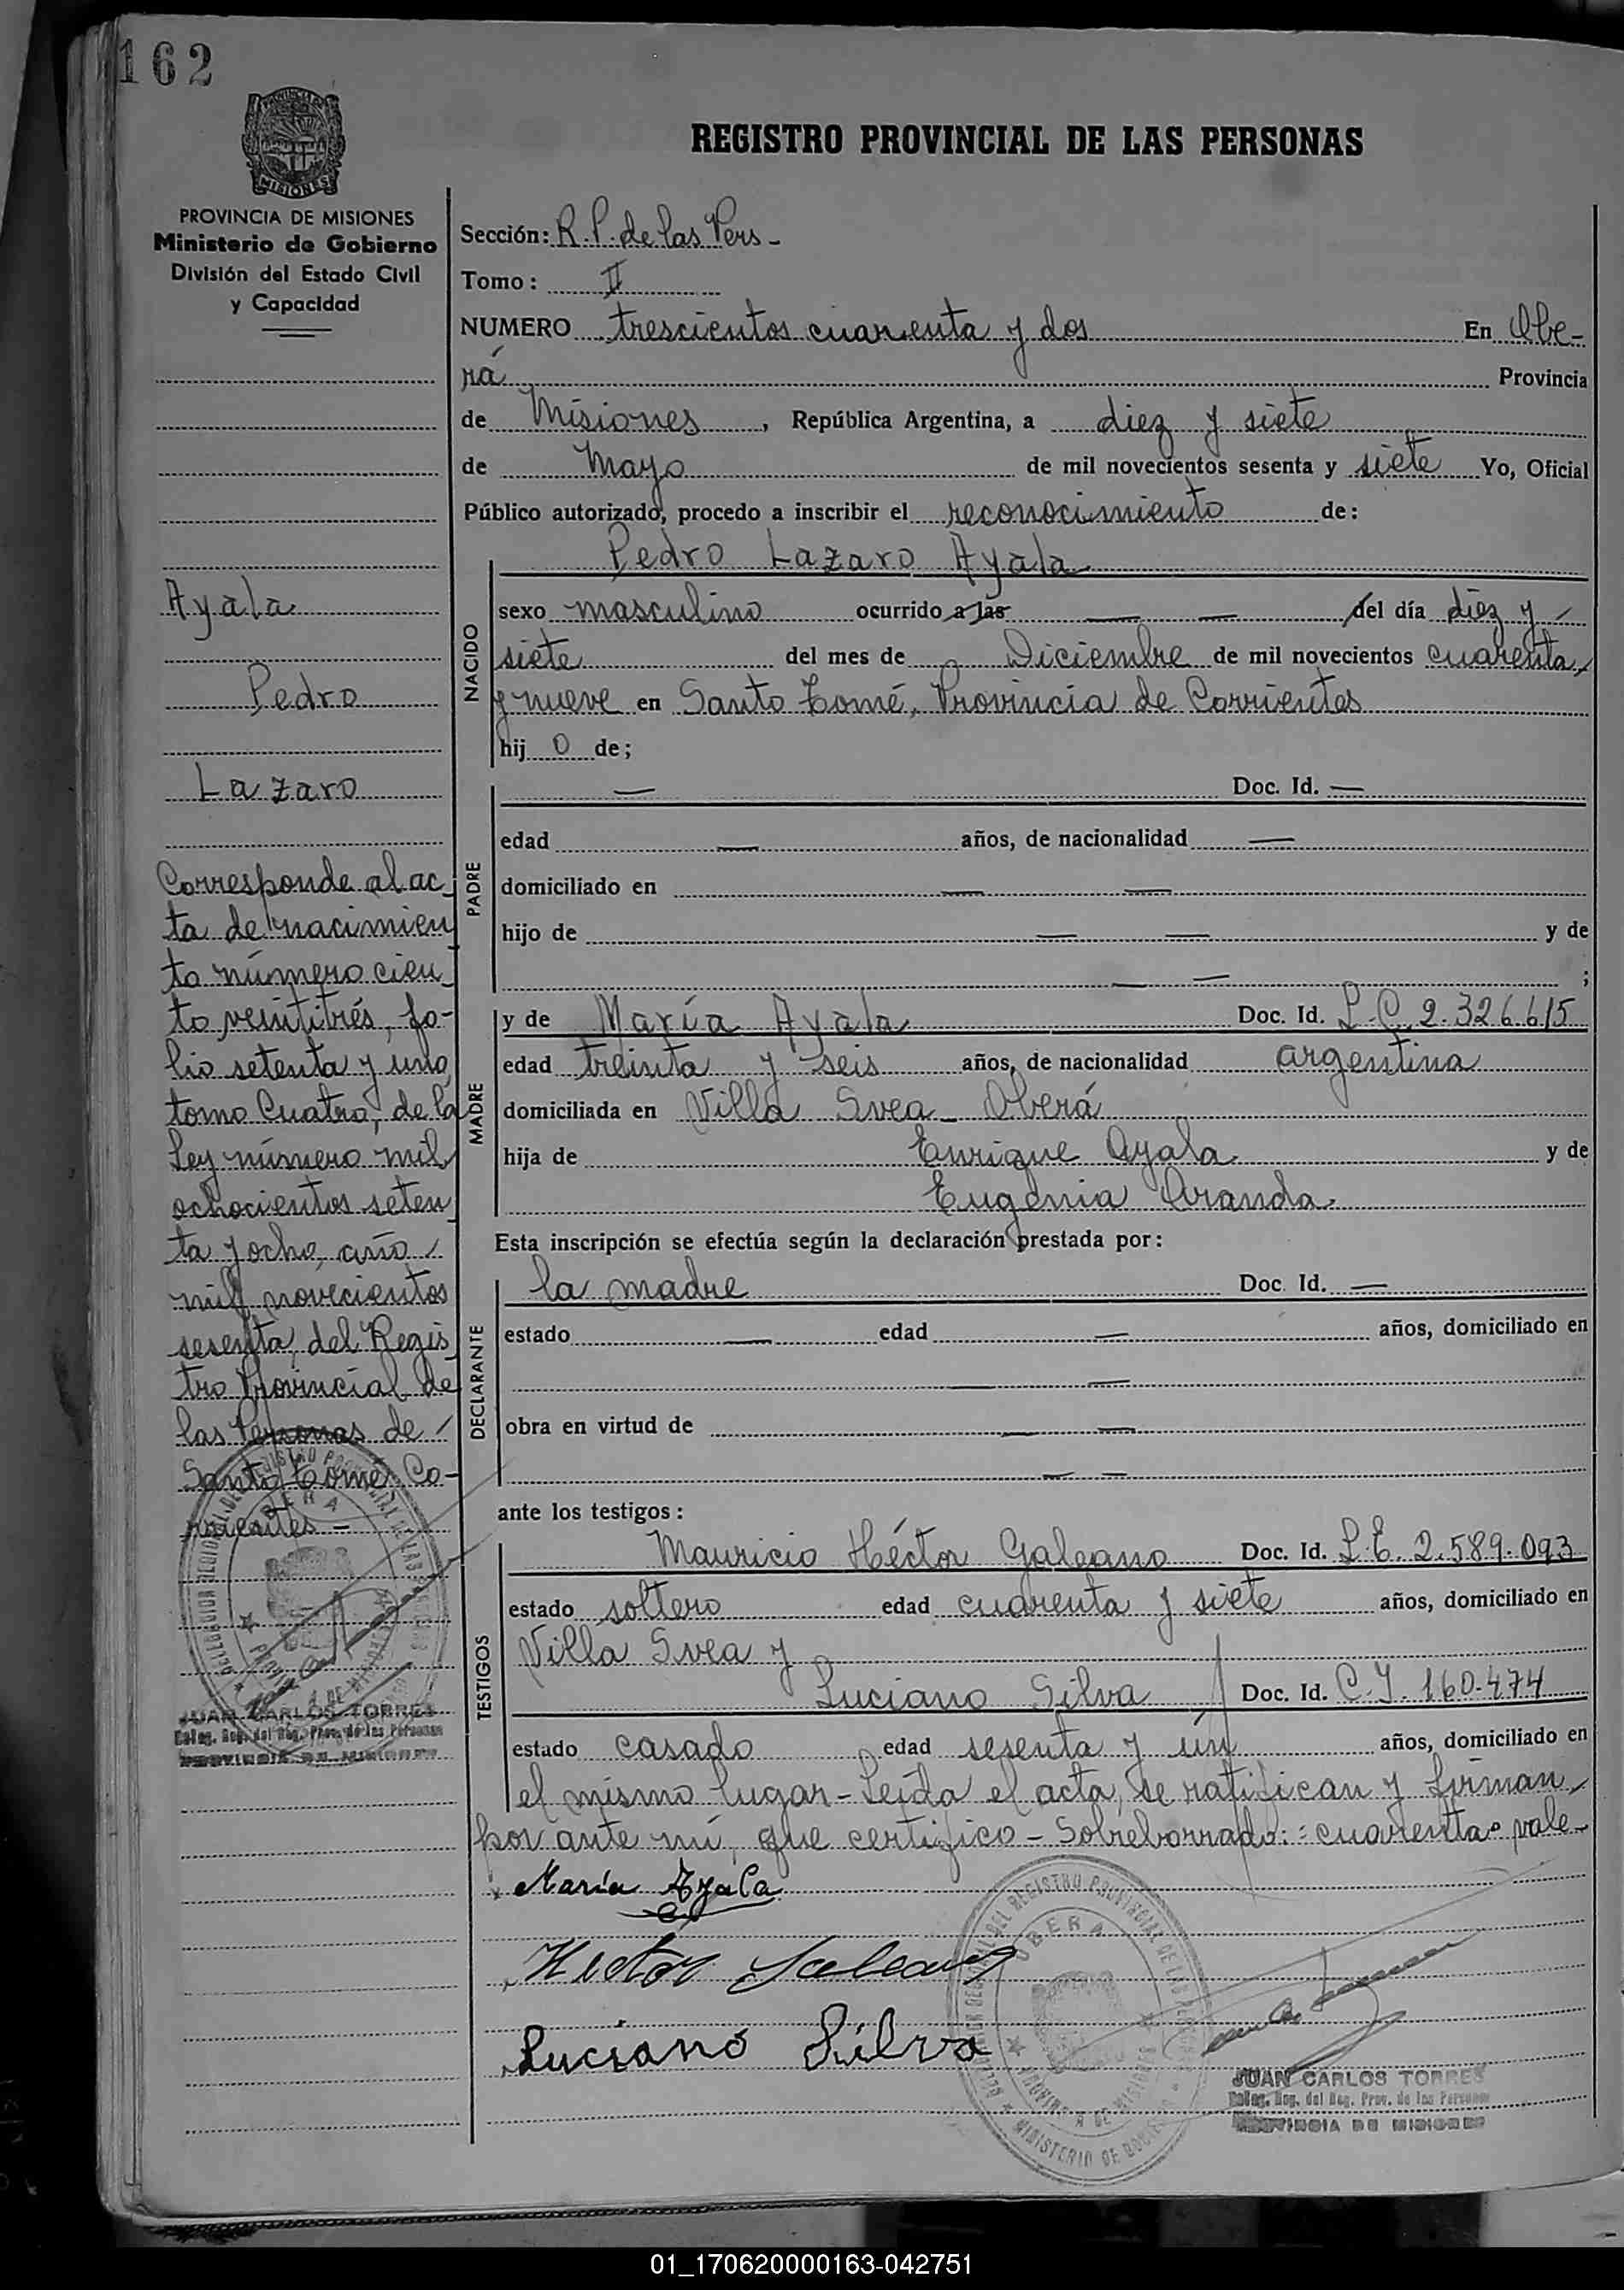 162
PROVINCIA DE MISIONES
Ministerio de Gobierno
División del Estado Civil
y Capacidad
Ayala
Pedro
Lazaro
Corresponde al ac-
ta de nacimien
to número cien
to veintitrés, fo-
lio setenta y uno
tomo Cuatro, de la
Ley número mil
ochocientos seten
ta y ocho, año
mil novecientos
sesenta, del Regis
tro Provincial de
las Personas de
Santo Tomé, Co-
rrientes -
JUAN CARLOS TORRES
Deleg. Reg. del Reg. Prov. de las Personas
PROVINCIA DE MISIONES
REGISTRO PROVINCIAL DE LAS PERSONAS
Sección: R.P. de las Pers -
Tomo: II
NUMERO trescientos cuarenta y dos En Obe-
rá Provincia
de Misiones, República Argentina, a diez y siete
de Mayo de mil novecientos sesenta y siete Yo, Oficial
Público autorizado, procedo a inscribir el reconocimiento de:
NACIDO
Pedro Lazaro Ayala
sexo masculino ocurrido a las — — del día diez y
siete del mes de Diciembre de mil novecientos cuarenta
y nueve en Santo Tomé, Provincia de Corrientes
hij o de;
PADRE
— Doc. Id. —
edad — años, de nacionalidad —
domiciliado en — —
hijo de — — y de
— — ;
MADRE
y de María Ayala Doc. Id. L.C. 2.326.615
edad treinta y seis años, de nacionalidad argentina
domiciliada en Villa Svea - Oberá
hija de Enrique Ayala y de
Eugenia Aranda.
Esta inscripción se efectúa según la declaración prestada por:
DECLARANTE
la madre Doc. Id. —
estado — edad — años, domiciliado en
— —
obra en virtud de — —
— —
ante los testigos:
TESTIGOS
Mauricio Héctor Galeano Doc. Id. L.E. 2.589.093
estado soltero edad cuarenta y siete años, domiciliado en
Villa Svea y
Luciano Silva Doc. Id. C.I. 160.474
estado casado edad sesenta y un años, domiciliado en
el mismo lugar - Leída el acta, se ratifican y firman
por ante mí, que certifico - Sobreborrado: "cuarenta" vale -
María Ayala
Hector Galeano
Luciano Silva
DELEGACION REGIONAL DEL REGISTRO PROVINCIAL DE LAS PERSONAS
OBERA
PROVINCIA DE MISIONES
MINISTERIO DE GOBIERNO
JUAN CARLOS TORRES
Deleg. Reg. del Reg. Prov. de las Personas
PROVINCIA DE MISIONES
01_170620000163-042751